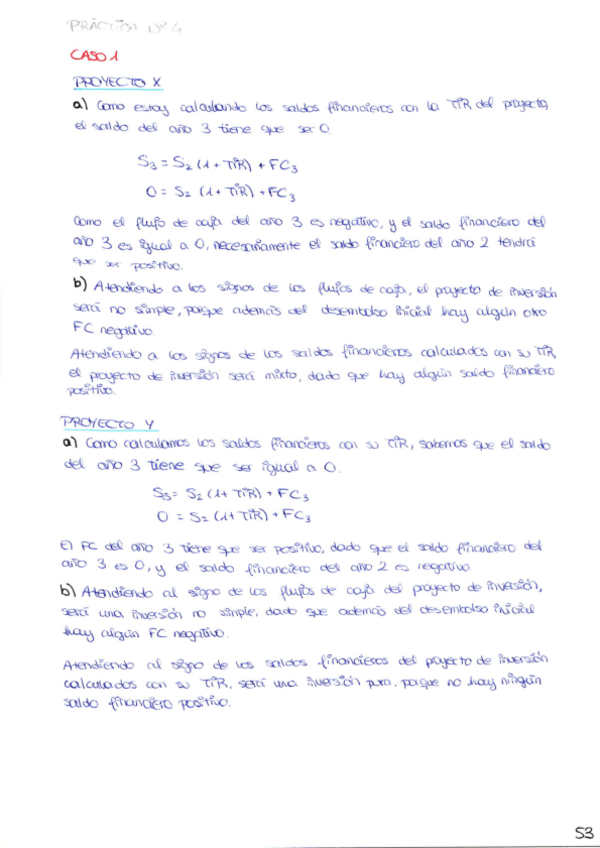 PRÁCTICA Nº 4
CASO 1
PROYECTO X
a) Como estoy calculando los saldos financieros con la TIR del proyecto,
el saldo del año 3 tiene que ser 0.
S3 = S2 (1 + TIR) + FC3
0 = S2 (1 + TIR) + FC3
Como el flujo de caja del año 3 es negativo, y el saldo financiero del
año 3 es igual a 0, necesariamente el saldo financiero del año 2 tendrá
que ser positivo.
b) Atendiendo a los signos de los flujos de caja, el proyecto de inversión
será no simple, porque además del desembolso inicial hay algún otro
FC negativo.
Atendiendo a los signos de los saldos financieros calculados con su TIR,
el proyecto de inversión será mixto, dado que hay algún saldo financiero
positivo.
PROYECTO Y
a) Como calculamos los saldos financieros con su TIR, sabemos que el saldo
del año 3 tiene que ser igual a 0.
S3 = S2 (1 + TIR) + FC3
0 = S2 (1 + TIR) + FC3
El FC del año 3 tiene que ser positivo, dado que el saldo financiero del
año 3 es 0, y el saldo financiero del año 2 es negativo.
b) Atendiendo al signo de los flujos de caja del proyecto de inversión,
será una inversión no simple, dado que además del desembolso inicial
hay algún FC negativo.
Atendiendo al signo de los saldos financieros del proyecto de inversión
calculados con su TIR, será una inversión pura, porque no hay ningún
saldo financiero positivo.
53